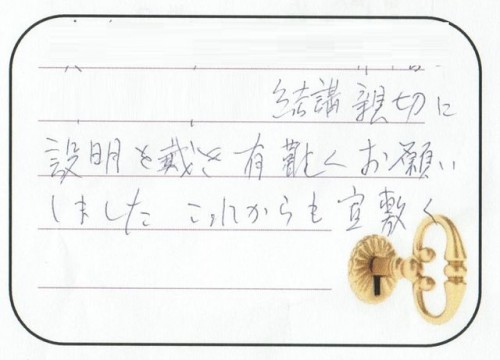 結講 親切に
説明を戴き有難くお願い
しました これからも宜敷く